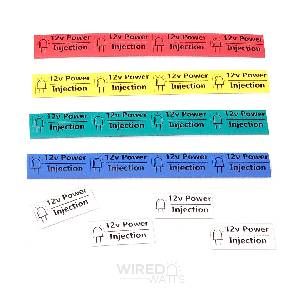 12v Power 12v Power 12v Power 12v Power
Injection Injection Injection Injection
12v Power 12v Power 12v Power 12v Power
Injection Injection Injection Injection
12v Power 12v Power 12v Power 12v Power
Injection Injection Injection Injection
12v Power 12v Power 12v Power 12v Power
Injection Injection Injection Injection
12v Power
Injection
12v Power
Injection
12v Power
Injection
12v Power
Injection
WIRED
WATTS